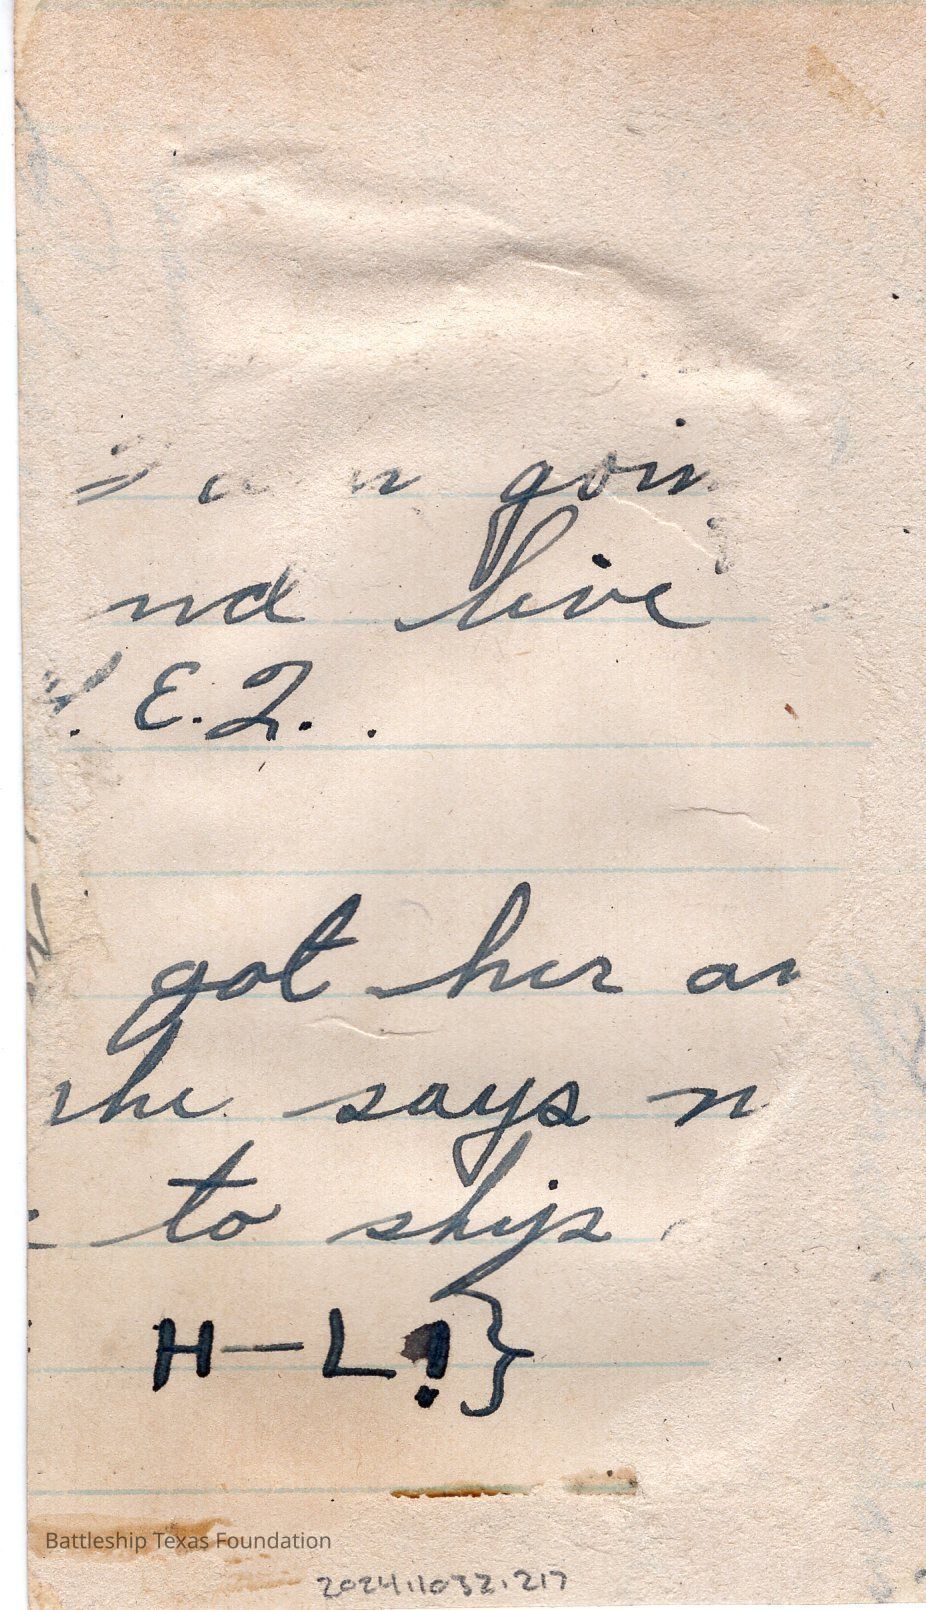 goin
nd live
E.Q.
got her an
she says n
to ship
H—L!}
Battleship Texas Foundation
2024.1032.217